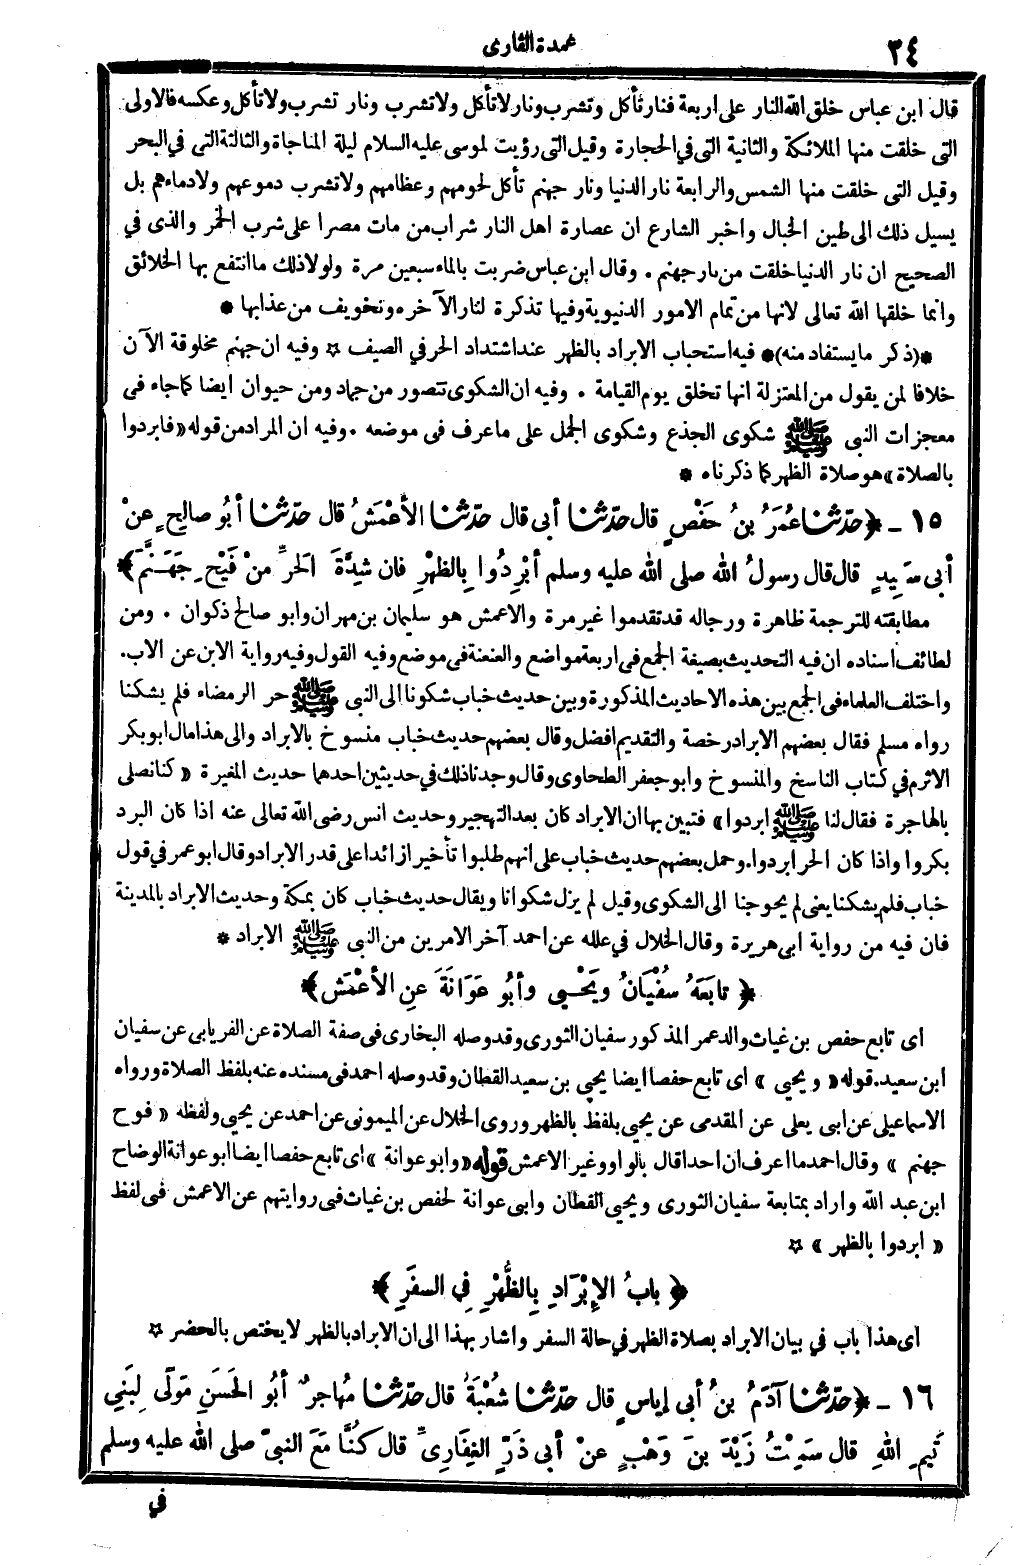 ٢٤
عمدة القارى
قال ابن عباس خلق الله النار على اربعة فنار تأكل وتشرب ونار لا تأكل ولا تشرب ونار تشرب ولا تأكل وعكسه فالاولى
التى خلقت منها الملائكة والثانية التى فى الحجارة وقيل التى رؤيت لموسى عليه السلام ليلة المناجاة والثالثة التى فى البحر
وقيل التى خلقت منها الشمس والرابعة نار الدنيا ونار جهنم تأكل لحومهم وعظامهم ولا تشرب دموعهم ولا دماءهم بل
يسيل ذلك الى طين الخبال واخبر الشارع ان عصارة اهل النار شراب من مات مصرا على شرب الخمر والذى فى
الصحيح ان نار الدنيا خلقت من نار جهنم . وقال ابن عباس ضربت بالماء سبعين مرة ولولا ذلك ما انتفع بها الخلائق
وانما خلقها الله تعالى لانها من تمام الامور الدنيوية وفيها تذكرة لنار الآخرة وتخويف من عذابها *
*(ذكر ما يستفاد منه)* فيه استحباب الابراد بالظهر عند اشتداد الحر فى الصيف ☆ وفيه ان جهنم مخلوقة الآن
خلافا لمن يقول من المعتزلة انها تخلق يوم القيامة . وفيه ان الشكوى تتصور من جماد ومن حيوان ايضا كما جاء فى
معجزات النبى ﷺ شكوى الجذع وشكوى الجمل على ما عرف فى موضعه . وفيه ان المراد من قوله «فابردوا
بالصلاة» هو صلاة الظهر كما ذكرناه *
١٥ - ﴿حدّثنا عُمَرُ بنُ حَفْصٍ قال حدّثنا أبى قال حدّثنا الأعْمَشُ قال حدّثنا أبُو صالِحٍ عنْ
أبى سَعِيدٍ قال قال رسولُ الله صلى الله عليه وسلم أبْرِدُوا بِالظهْرِ فان شِدَّةَ الحرِّ منْ فَيْحِ جَهَنَّمَ﴾
مطابقته للترجمة ظاهرة ورجاله قد تقدموا غير مرة والاعمش هو سليمان بن مهران وابو صالح ذكوان . ومن
لطائف اسناده ان فيه التحديث بصيغة الجمع فى اربعة مواضع والعنعنة فى موضع وفيه القول وفيه رواية الابن عن الاب.
واختلف العلماء فى الجمع بين هذه الاحاديث المذكورة وبين حديث خباب شكونا الى النبى ﷺ حر الرمضاء فلم يشكنا
رواه مسلم فقال بعضهم الابراد رخصة والتقديم افضل وقال بعضهم حديث خباب منسوخ بالابراد والى هذا مال ابو بكر
الاثرم فى كتاب الناسخ والمنسوخ وابو جعفر الطحاوى وقال وجدنا ذلك فى حديثين احدهما حديث المغيرة «كنا نصلى
بالهاجرة فقال لنا ﷺ ابردوا» فتبين بها ان الابراد كان بعد التهجير وحديث انس رضى الله تعالى عنه اذا كان البرد
بكروا واذا كان الحر ابردوا. وحمل بعضهم حديث خباب على انهم طلبوا تأخيرا زائدا على قدر الابراد وقال ابو عمر فى قول
خباب فلم يشكنا يعنى لم يحوجنا الى الشكوى وقيل لم يزل شكوانا ويقال حديث خباب كان بمكة وحديث الابراد بالمدينة
فان فيه من رواية ابى هريرة وقال الخلال فى علله عن احمد آخر الامرين من النبى ﷺ الابراد *
﴿تابَعَهُ سُفْيَانُ ويَحْيى وأبُو عَوَانَةَ عَنِ الأعْمَشِ﴾
اى تابع حفص بن غياث والد عمر المذكور سفيان الثورى وقد وصله البخارى فى صفة الصلاة عن الفريابى عن سفيان
ابن سعيد. قوله «ويحيى» اى تابع حفصا ايضا يحيى بن سعيد القطان وقد وصله احمد فى مسنده عنه بلفظ الصلاة ورواه
الاسماعيلى عن ابى يعلى عن المقدمى عن يحيى بلفظ بالظهر وروى الخلال عن الميمونى عن احمد عن يحيى ولفظه «فوح
جهنم» وقال احمد ما اعرف ان احدا قال بالواو غير الاعمش قوله «وابو عوانة» اى تابع حفصا ايضا ابو عوانة الوضاح
ابن عبد الله واراد بمتابعة سفيان الثورى ويحيى القطان وابى عوانة لحفص بن غياث فى روايتهم عن الاعمش فى لفظ
«ابردوا بالظهر» ☆
﴿بابُ الإبْرَادِ بِالظُّهْرِ فِي السفَرِ﴾
اى هذا باب فى بيان الابراد بصلاة الظهر فى حالة السفر واشار بهذا الى ان الابراد بالظهر لا يختص بالحضر ☆
١٦ - ﴿حدّثنا آدَمُ بنُ أبى إياسٍ قال حدّثنا شُعْبَةُ قال حدّثنا مُهاجرٌ أبُو الحَسَنِ مَوْلًى لِبَنِي
تَيْمِ اللهِ قال سَمِعْتُ زَيْدَ بنَ وَهْبٍ عنْ أبى ذَرٍّ الغِفَارِىِّ قال كُنَّا مَعَ النبىّ صلى الله عليه وسلم
فى